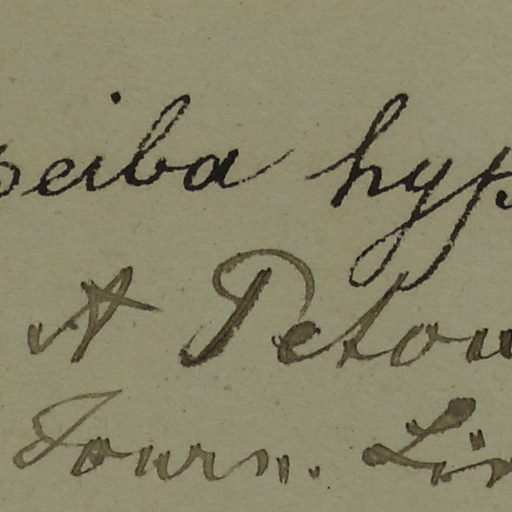 peiba hyp
A Petou
Journ. Lin